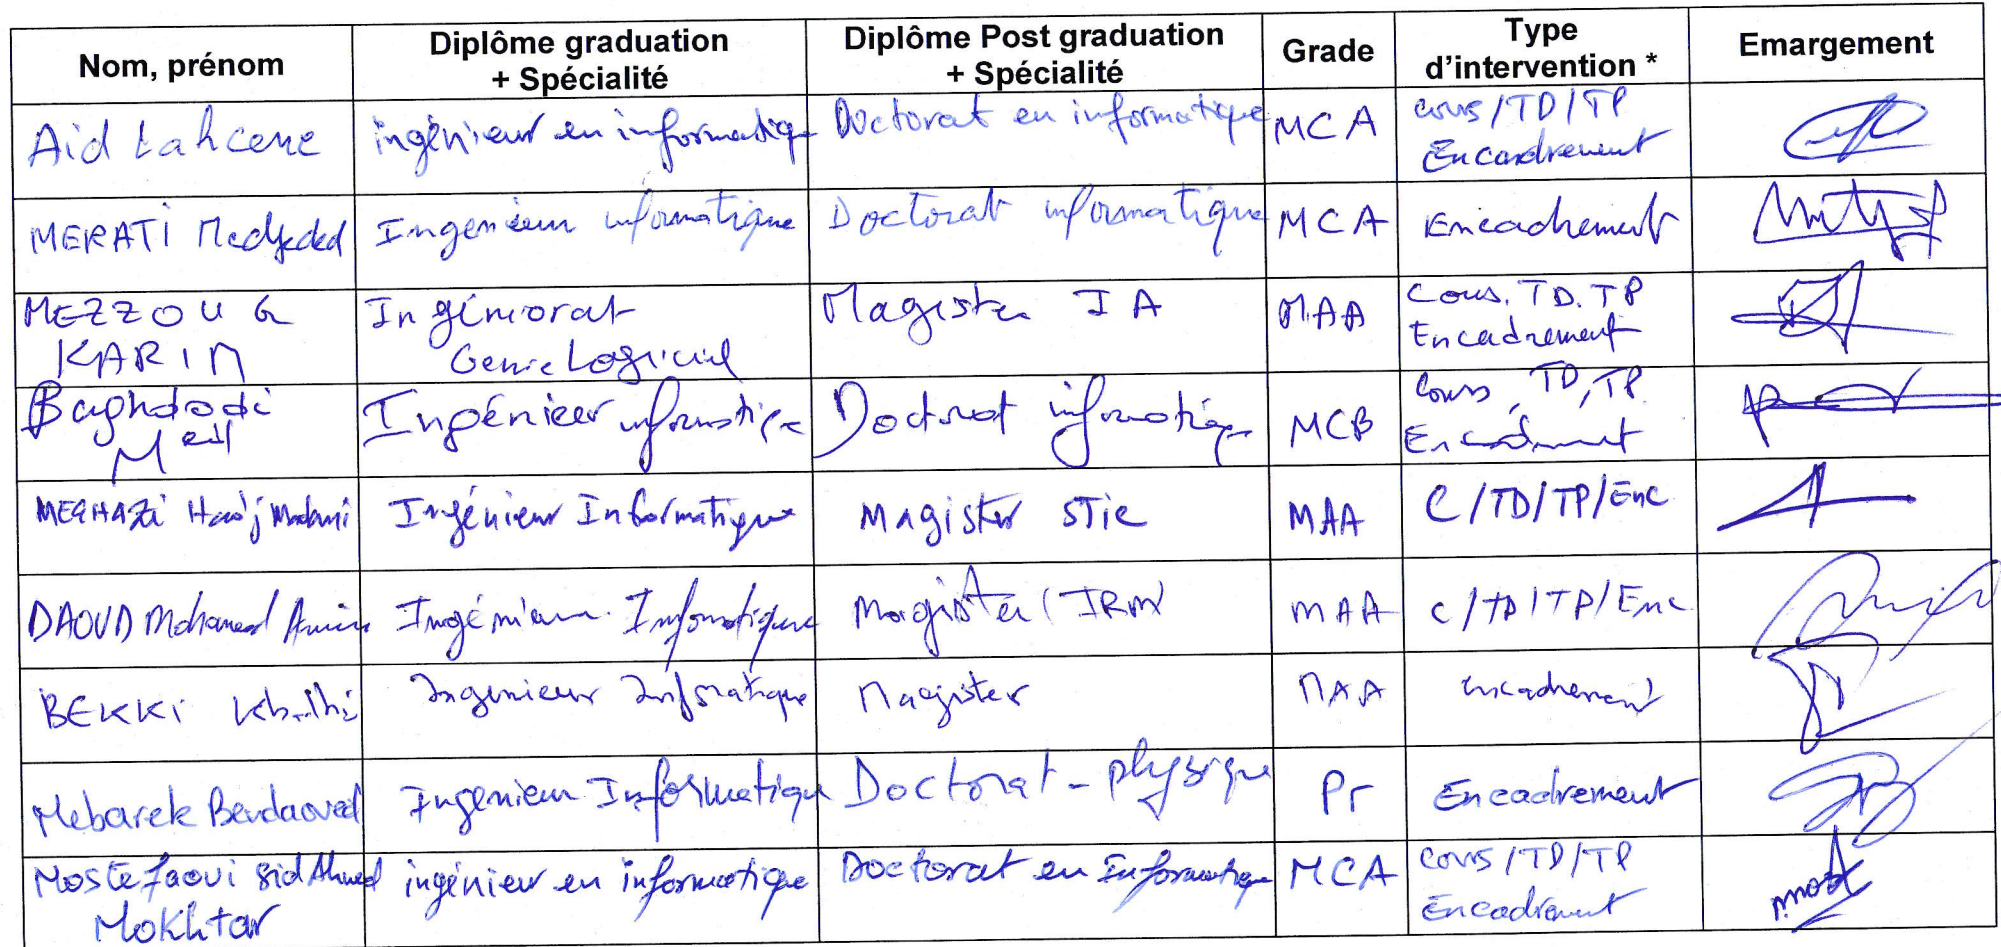 Nom, prénom
Diplôme graduation
+ Spécialité
Diplôme Post graduation
+ Spécialité
Grade
Type
d'intervention *
Emargement
Aid Lahcene
ingénieur en informatique
Doctorat en informatique
MCA
cours/TD/TP
Encadrement
MERATI Medjeded
Ingenieur informatique
Doctorat informatique
MCA
Encadrement
MEZZOUG
KARIM
Ingéniorat
Genie Logiciel
Magister IA
MAA
Cours. TD. TP
Encadrement
Baghdadi
Ingénieur informatique
Doctorat informatique
MCB
Cours, TD, TP
Encadrement
MEGHAZI Hadj Madani
Ingénieur Informatique
Magister STIC
MAA
C/TD/TP/Enc
DAOUD Mohamed Amine
Ingénieur Informatique
Magister (IRM)
MAA
C/TD/TP/Enc
BEKKI
Ingenieur Informatique
Magister
MAA
encadrement
Mebarek Bendaoued
Ingenieur Informatique
Doctorat - physique
Pr
Encadrement
Mostefaoui Sid Ahmed
Mokhtar
ingénieur en informatique
Doctorat en Informatique
MCA
cours/TD/TP
Encadrement